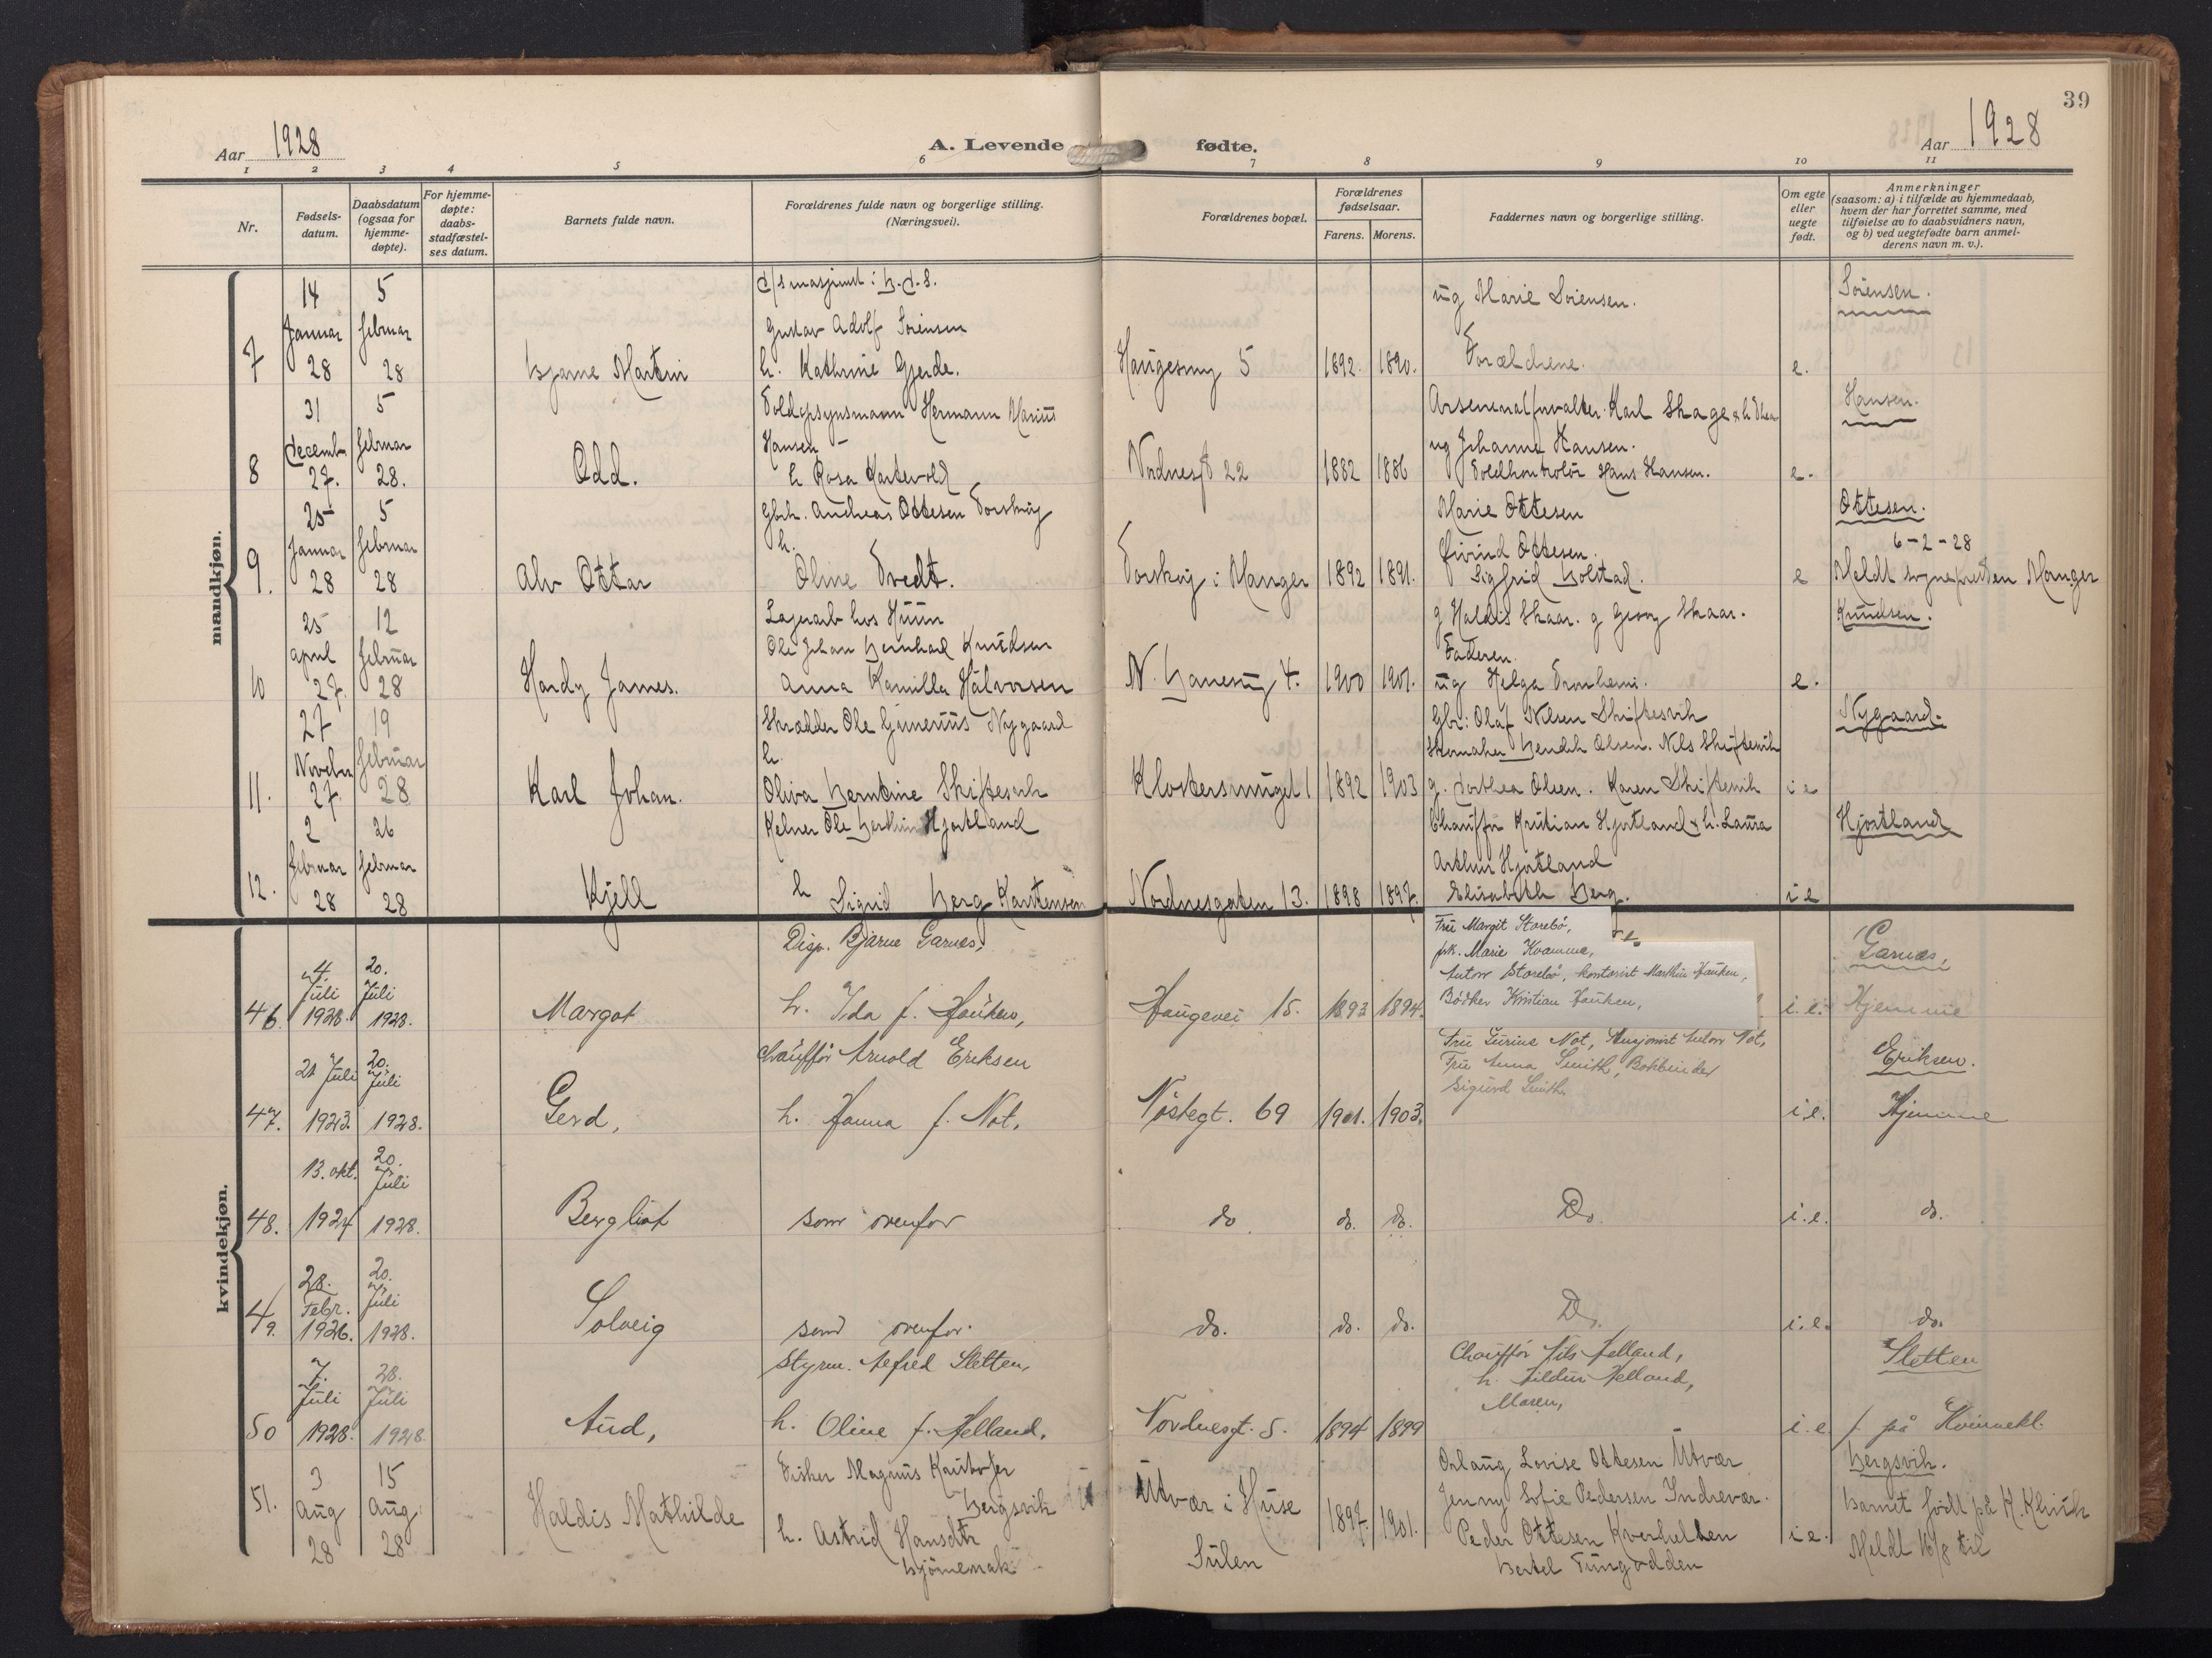 39
Aar 1928
A. Levende fødte.
Aar 1928
1 2 3 4 5 6 7 8 9 10 11
Nr.
Fødsels-
datum.
Daabsdatum
(ogsaa for
hjemme-
døpte).
For hjemme-
døpte:
daabs-
stadfæstel-
ses datum.
Barnets fulde navn.
Forældrenes fulde navn og borgerlige stilling.
(Næringsvei).
Forældrenes bopæl.
Forældrenes
fødselsaar.
Farens. Morens.
Faddernes navn og borgerlige stilling.
Om egte
eller
uegte
født.
Anmerkninger
(saasom: a) i tilfælde av hjemmedaab,
hvem der har forrettet samme, med
tilføielse av to daabsvidners navn,
og b) ved uegtefødte barn anmel-
derens navn m. v.).
mandkjøn.
7
14
Januar
28
5
februar
28
Bjarne Martin
Gustav Adolf Sørensen
h. Kathrine Gjerde.
Haugesmug 5
1892. 1890.
ug Marie Sørensen.
Forældrene.
e.
Sørensen.
8
31
Decemb
27.
5
februar
28.
Odd.
Toldopsynsmann Hermann Marius
Hansen
h Rosa Kartevold
Nordnesgt 22
1882 1886
Karl Skage & h Thea
ug Johanne Hansen.
Toldkontrolør Hans Hansen.
e.
Hansen.
9.
25
Januar
28
5
februar
28
Alv Ottar
Gbr. Andreas Ottesen Torskøy
h.
Oline Tvedt.
Torskøy i Manger
1892 1891.
Marie Ottesen
Øivind Ottesen.
Sigfrid Bolstad.
e
Ottesen.
6-2-28
Meldt sogneprsten Manger
10
25
april
27.
12
februar
28
Hardy James.
Lagerarb hos Huun
Ole Johan Bernhard Knudsen
Anna Kamilla Halvorsen
N. 4.
1900 1901.
g Haldis Skaar. g Georg Skaar.
Faderen.
ug Helga Tronheim.
e.
Knudsen.
11.
27
Novebr
27.
19
februar
28
Karl Johan.
Skrædder Ole Nygaard
h.
Oliva Berntine Skiftesvik
Klostersmuget 1
1892 1903
Gbr: Olaf Nilsen Skiftesvik
Skomaker Olsen. Nils Skiftesvik
g. Dorthea Olsen. Karen Skiftesvik
ie
Nygaard.
12.
2
februar
28
26
februar
28
Kjell
Kelner Ole Hjortland
h Sigrid Berg Karstensen
Nordnesgaten 13.
1898 1897.
Chauffør Kristian Hjortland & h. Laura
Arthur Hjortland
Elisabeth Berg.
ie
Hjortland
kvindekjøn.
46.
4.
Juli
1928.
20.
Juli
1928.
Margot
Disp. Bjarne Garnes,
h. Ida f. Hauken,
Haugevei 15.
1893 1894.
Fru Margit Storebø,
frk. Marie Kvamme,
Anton Storebø, kontorist Marthin Hauken,
Bødker Kristian Hauken,
i.e.
Garnes,
Hjemme
47.
21 Juli
1923.
20.
Juli
1928.
Gerd,
Chauffør Arnold Eriksen
h. Hanna f. Not.
Nøstegt. 69
1901. 1903.
Not, Anton Not,
Fru Anna Smith, Bokbinder
Sigurd Smith.
i.e.
Eriksen.
Hjemme
48.
13. okt.
1924
20.
Juli
1928.
Bergliot
som ovenfor
do. do. do.
Do.
i.e.
do.
49.
28.
Febr.
1926.
20.
Juli
1928.
Solveig
som ovenfor
do. do. do.
Do.
i.e.
do.
50
7.
Juli
1928.
28.
Juli
1928.
Aud,
Styrm. Alfred Sletten,
h. Oline f. Helland,
Nordnesgt. 5.
1894 1899
Chauffør Nils Helland,
h. Hildur Helland,
Moren,
i.e.
Sletten
f. på Kvinnekl.
51.
3
Aug
28
15
Aug
28
Haldis Mathilde
Fisker Magnus Kristofer
Bergsvik
h. Astrid Hansdtr
Utvær i Huse
Sulen
1897. 1901.
Orlaug Lovise Ottesen Utvær
Jenny Sofie Pedersen Indrevær.
Peder Ottesen Kverhellen
Bertel Tungodden
i e.
Bergsvik.
Barnet født på K. Klinik
Meldt 16/8 til